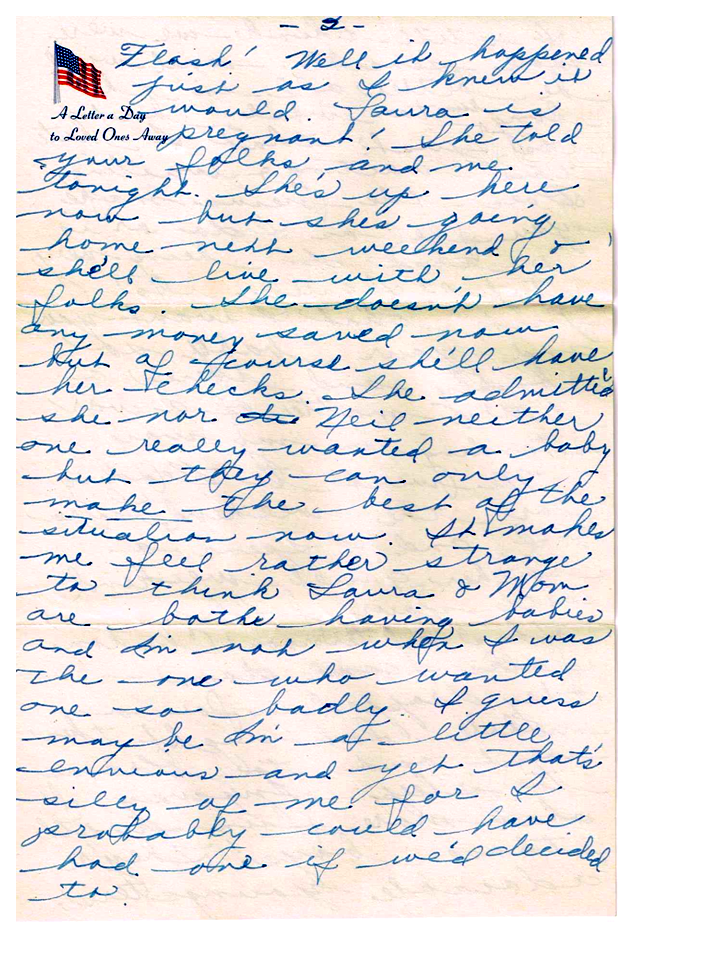 - 2 -
Flash! Well it happened
just as I knew it
would. Laura is
A Letter a Day
to Loved Ones Away
pregnant! She told
your folks and me
tonight. She's up here
now but shes going
home next weekend &
she'll live with her
folks. She doesn't have
any money saved now
but of course she'll have
her checks. She admitted
she nor Neil neither
one really wanted a baby
but they can only
make the best of the
situation now. It makes
me feel rather strange
to think Laura & Mom
are both having babies
and I'm not when I was
the one who wanted
one so badly. I guess
maybe I'm a little
envious and yet that's
silly of me for I
probably could have
had one if we'd decided
to.